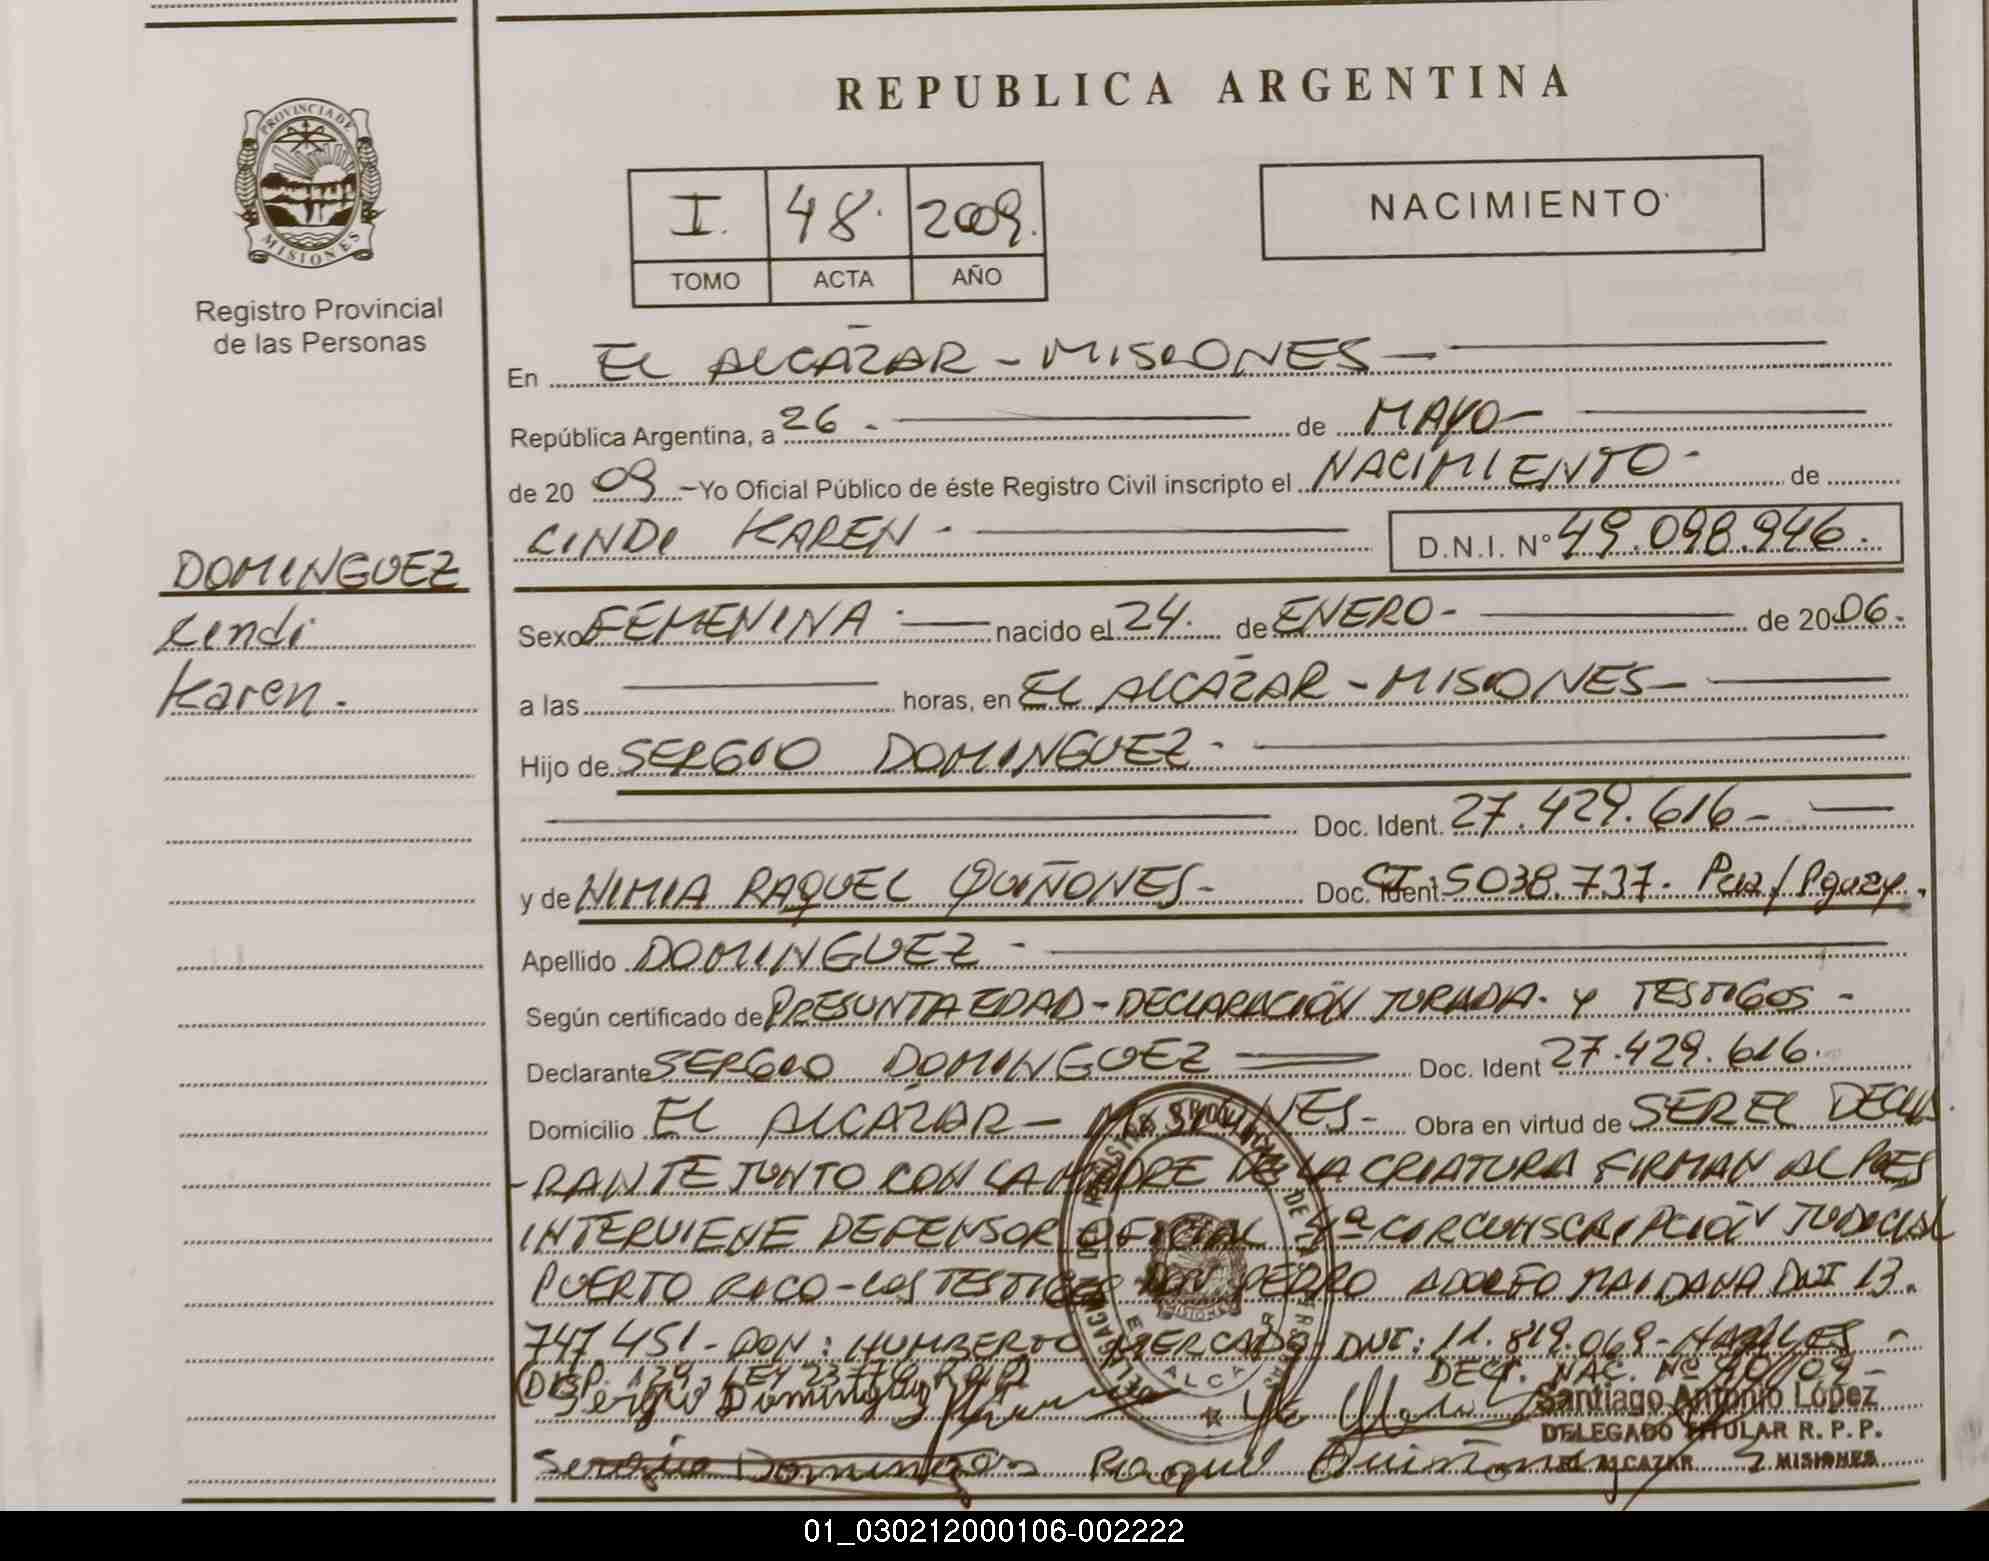 REPUBLICA ARGENTINA
PROVINCIA DE
MISIONES
Registro Provincial
de las Personas
I. 48. 2009.
TOMO ACTA AÑO
NACIMIENTO
En EL ALCAZAR - MISIONES -
República Argentina, a 26 - de MAYO -
de 20 09 - Yo Oficial Público de éste Registro Civil inscripto el NACIMIENTO - de
CINDI KAREN - D.N.I. Nº 49.098.946.
DOMINGUEZ
Cindi
Karen.
Sexo FEMENINA - nacido el 24. de ENERO - de 2006.
a las horas, en EL ALCAZAR - MISIONES -
Hijo de SERGIO DOMINGUEZ -
Doc. Ident. 27.429.616 -
y de NIMIA RAQUEL QUIÑONES - Doc. Ident. CI 5038.737. Pcia/Pguay.
Apellido DOMINGUEZ -
Según certificado de PRESUNTA EDAD - DECLARACIÓN JURADA - Y TESTIGOS -
Declarante SERGIO DOMINGUEZ Doc. Ident 27.429.616.
Domicilio EL ALCAZAR - MISIONES - Obra en virtud de SER EL DECLA
- RANTE JUNTO CON LA MADRE DE LA CRIATURA FIRMAN AL PIE
INTERVIENE DEFENSOR OFICIAL 4ª CIRCUNSCRIPCIÓN JUDICIAL
PUERTO RICO - LOS TESTIGOS DON PEDRO ADOLFO MAIDANA DNI 13.
747 451 - DON: HUMBERTO MERCADO DNI: 11.819.069 -
DECT. NAC. Nº 90/09 -
Sergio Dominguez
Santiago Antonio López
DELEGADO TITULAR R. P. P.
EL ALCAZAR MISIONES
Sergio Raquel Quiñones
01_030212000106-002222